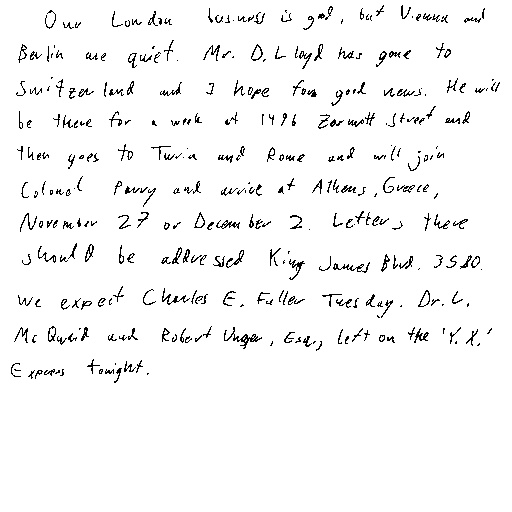 Our London business is good, but Vienna and
Berlin are quiet. Mr. D. Lloyd has gone to
Switzerland and I hope for good news. He will
be there for a week at 1496 Zermott Street and
then goes to Turin and Rome and will join
Colonel Parry and arrive at Athens, Greece,
November 27 or December 2. Letters there
should be addressed King James Blvd. 3580.
We expect Charles E. Fuller Tuesday. Dr. L.
McQuaid and Robert Unger, Esq., left on the 'Y.X.'
Express tonight.